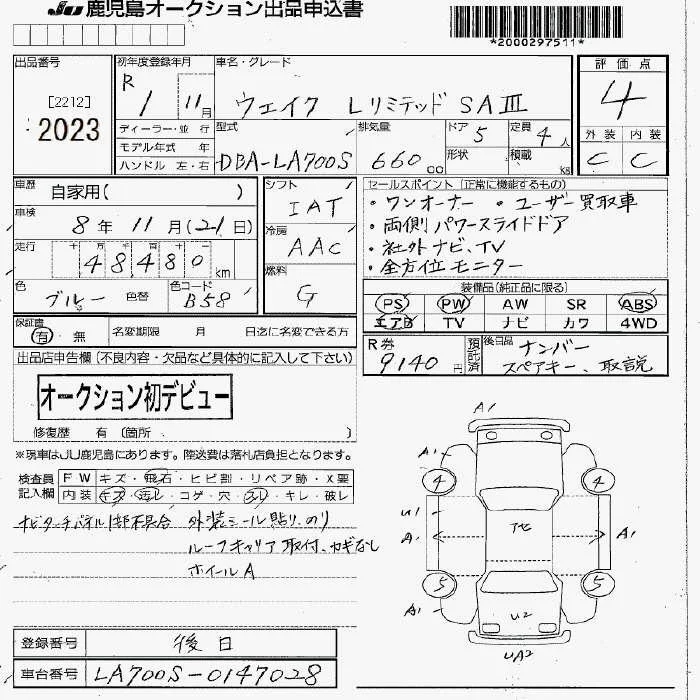 JU 鹿児島オークション出品申込書
*2000297511*
出品番号
[2212]
2023
初年度登録年月
R 1 11月
ディーラー・並 行
モデル年式 年
ハンドル 左・右
車名・グレード
ウェイク Lリミテッド SAⅢ
型式 排気量 ドア 定員
DBA-LA700S 660 cc 5 4人
形状 積載 kg
評価点
4
外装 内装
C C
車歴 自家用( )
車検 8年11月(21日)
走行 十 万 千 百 十 一
48480 km
色 ブルー 色替 色コード B58
シフト IAT
冷房 AAC
燃料 G
セールスポイント (正常に機能するもの)
・ワンオーナー ・ユーザー買取車
・両側パワースライドドア
・社外ナビ、TV
・全方位モニター
装備品(純正品に限る)
PS PW AW SR ABS
エアB TV ナビ カワ 4WD
保証書 有・無 名変期限 月 日迄に名変できる方
R券 9140円
預託済
後日品 ナンバー
スペアキー、取説
出品店申告欄 (不良内容・欠品など具体的に記入して下さい)
オークション初デビュー
修復歴 有 (箇所 )
※現車はJU鹿児島にあります。陸送費は落札店負担となります。
検査員記入欄
FW キズ・飛石・ヒビ割・リペア跡・X要
内装 キズ・汚レ・コゲ・穴・スレ・キレ・破レ
ナビタッチパネル1部不具合 外装シール貼り、のり
ルーフキャリア取付、カギなし
ホイールA
A1
A1 4 4
U1
A1 A1
5 5
A1 U2
UA2
登録番号 後日
車台番号 LA700S-0147028